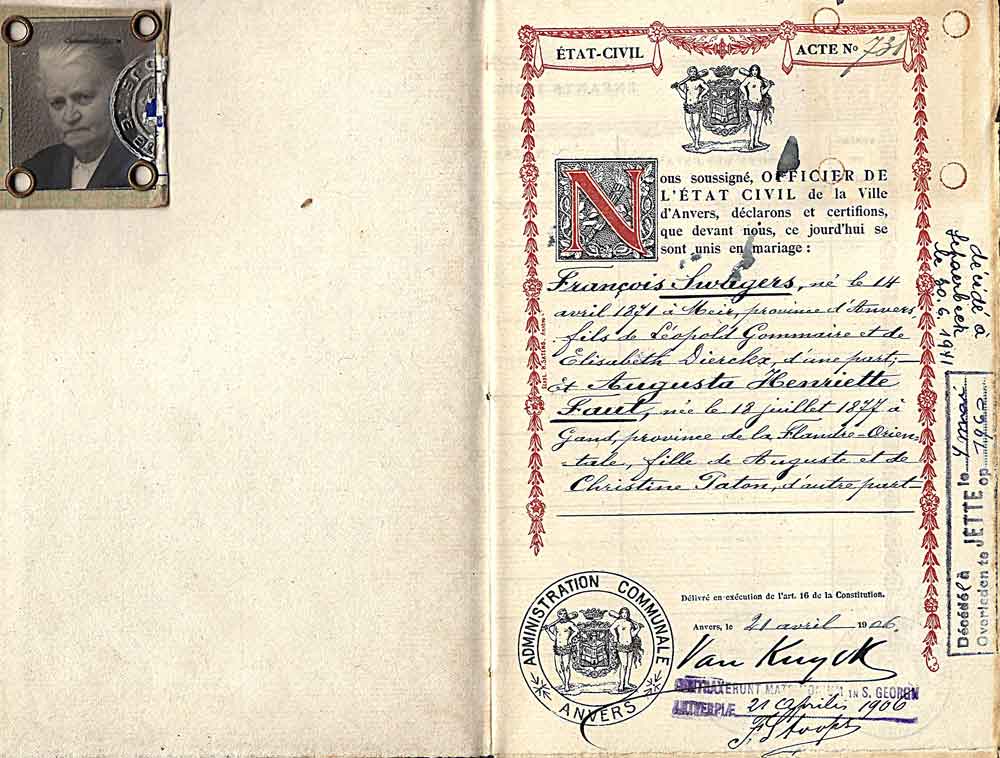 ÉTAT-CIVIL
ACTE No 731
Nous soussigné, OFFICIER DE
L'ÉTAT CIVIL de la Ville
d'Anvers, déclarons et certifions,
que devant nous, ce jourd'hui se
sont unis en mariage :
François Swagers, né le 14
avril 1871 à Meir, province d'Anvers,
fils de Léopold Gommaire et de
Elisabeth Dierckx, d'une part;
et Augusta Henriette
Faut, née le 18 juillet 1877 à
Gand, province de la Flandre-Orien-
tale, fille de Auguste et de
Christine Paton, d'autre part
Délivré en exécution de l'art. 16 de la Constitution.
Anvers, le 21 avril 1906.
Van Kuyck
ADMINISTRATION COMMUNALE
ANVERS
CONTRAXERUNT IN S. GEORGII
ANTVERPIÆ 21 Aprilis 1906
F. Stoops
décédé à
le 30.6.1941
Décédé à JETTE le
Overleden te JETTE op